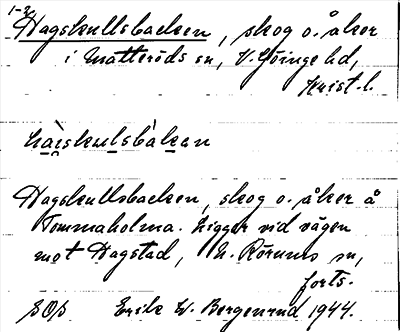 1-2
Hagskullsbacken, skog o. åker
i Matteröds sn, V. Göinge hd,
Krist. l.
hàiskulsbàkan
Hagskullsbacken, skog o. åker å
Tommaholma. Ligger vid vägen
mot Hagstad, N. Rörums sn,
forts.
SOS Erik W. Bergenrud 1944.